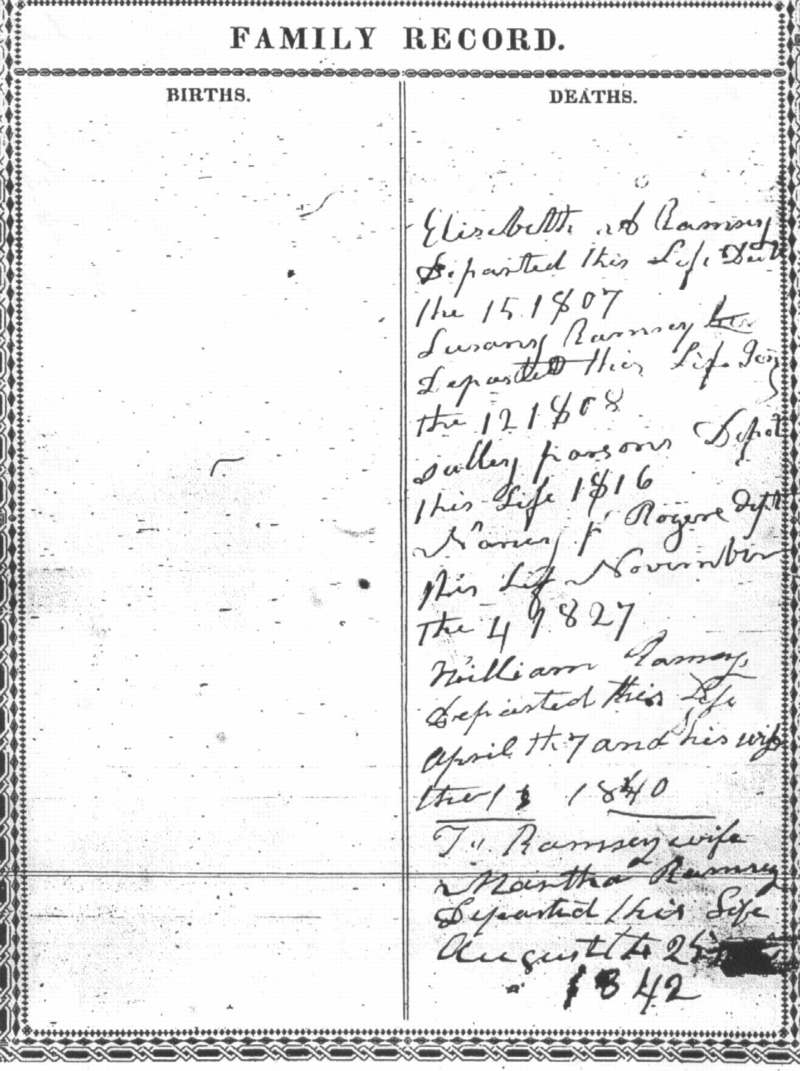 FAMILY RECORD.
BIRTHS.
DEATHS.
Elizebeth A Ramsey
Departed this Life
the 15 1807
Susany Ramsey
Departed this Life
the 12 1808
Salley parsons Depat
this Life 1816
Naney P Rogers dept
this Lif November
the 4 1827
William Ramsey
Departed this Life
April th 7 and his wife
the 1 1840
T" Ramsey wife
Martha Ramsey
Departed this Life
August th 2
1842